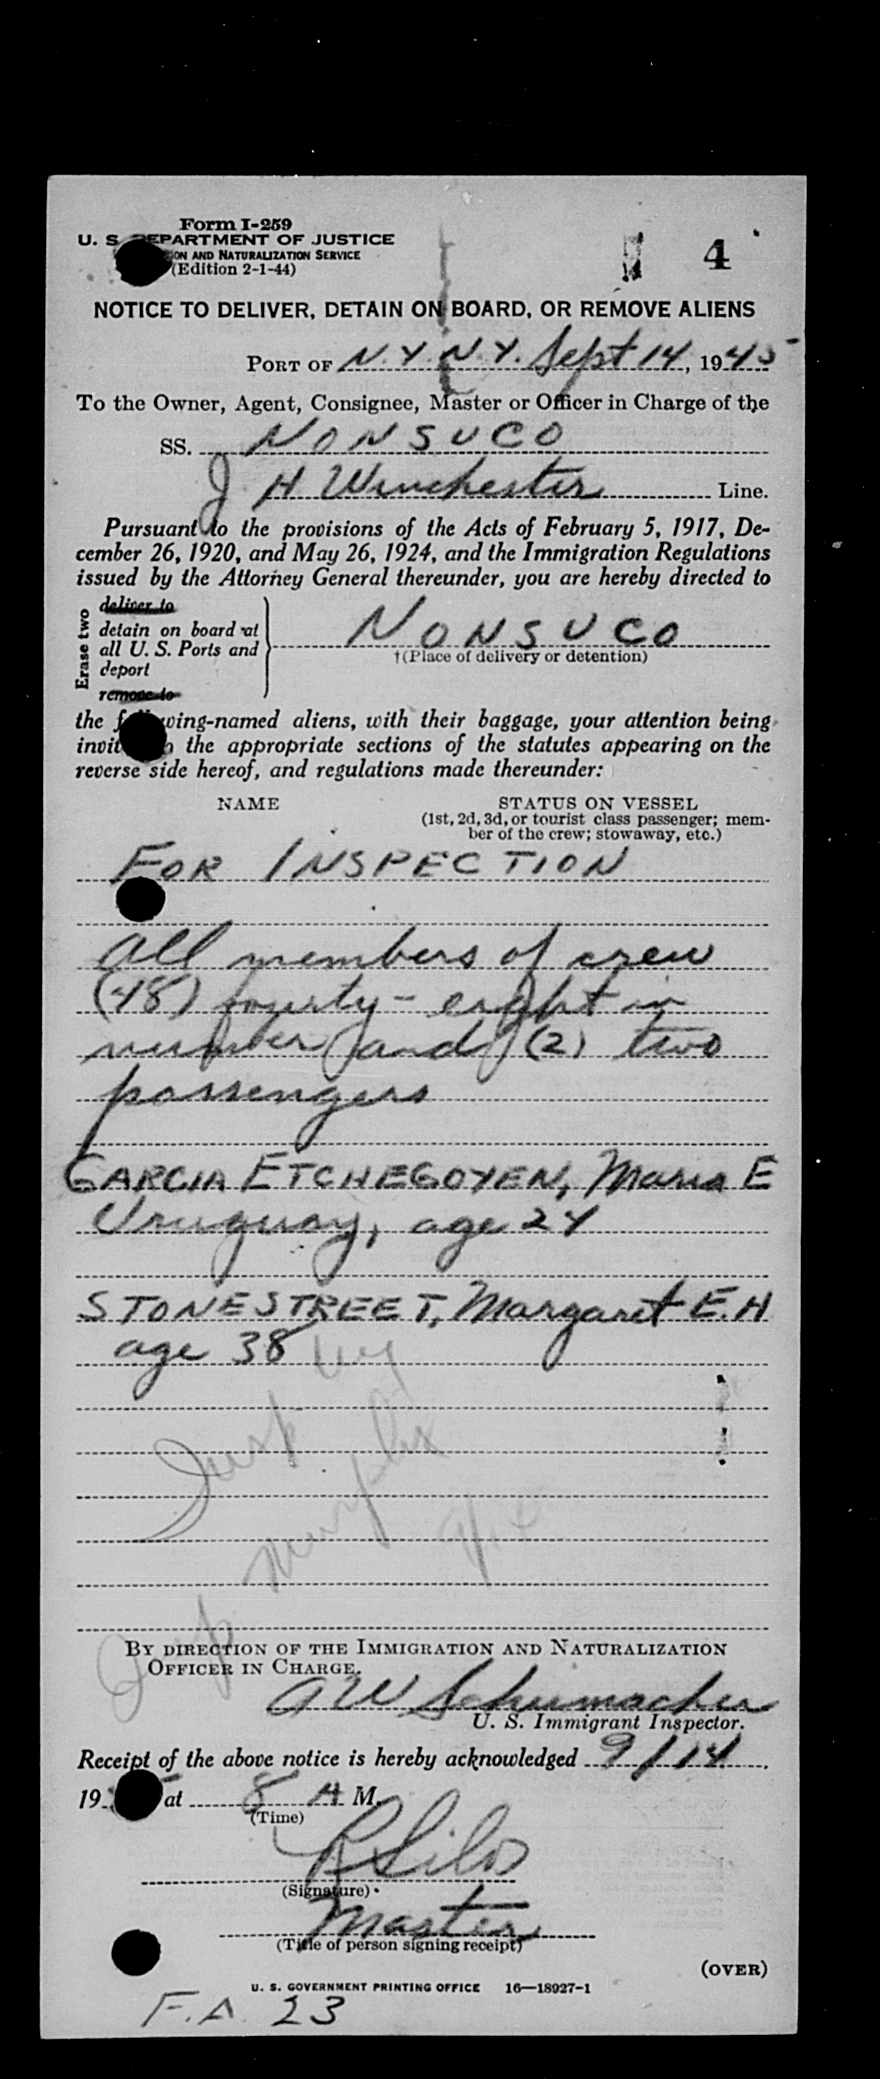 Form I-259
U. S. DEPARTMENT OF JUSTICE
ION AND NATURALIZATION SERVICE
(Edition 2-1-44)
4
NOTICE TO DELIVER, DETAIN ON BOARD, OR REMOVE ALIENS
PORT OF N.Y. N.Y. Sept 14, 1945
To the Owner, Agent, Consignee, Master or Officer in Charge of the
SS. NONSUCO
J H Winchester Line.
Pursuant to the provisions of the Acts of February 5, 1917, De-
cember 26, 1920, and May 26, 1924, and the Immigration Regulations
issued by the Attorney General thereunder, you are hereby directed to
Erase two
deliver to
detain on board at
all U. S. Ports and
deport
remove to
NONSUCO
†(Place of delivery or detention)
the following-named aliens, with their baggage, your attention being
invit the appropriate sections of the statutes appearing on the
reverse side hereof, and regulations made thereunder:
NAME STATUS ON VESSEL
(1st, 2d, 3d, or tourist class passenger; mem-
ber of the crew; stowaway, etc.)
FOR INSPECTION
All members of crew
(48) fourty-eight in
number and (2) two
passengers
GARCIA ETCHEGOYEN, Maria E
Uruguay, age 24
STONESTREET, Margaret E.H
age 38
Insp
Murphy
BY DIRECTION OF THE IMMIGRATION AND NATURALIZATION
OFFICER IN CHARGE.
A W Schumacher
U. S. Immigrant Inspector.
Receipt of the above notice is hereby acknowledged 9/14,
19 at 8 A M.
(Time)
(Signature)
Master
(Title of person signing receipt)
(OVER)
U. S. GOVERNMENT PRINTING OFFICE 16—18927-1
F.A. 23